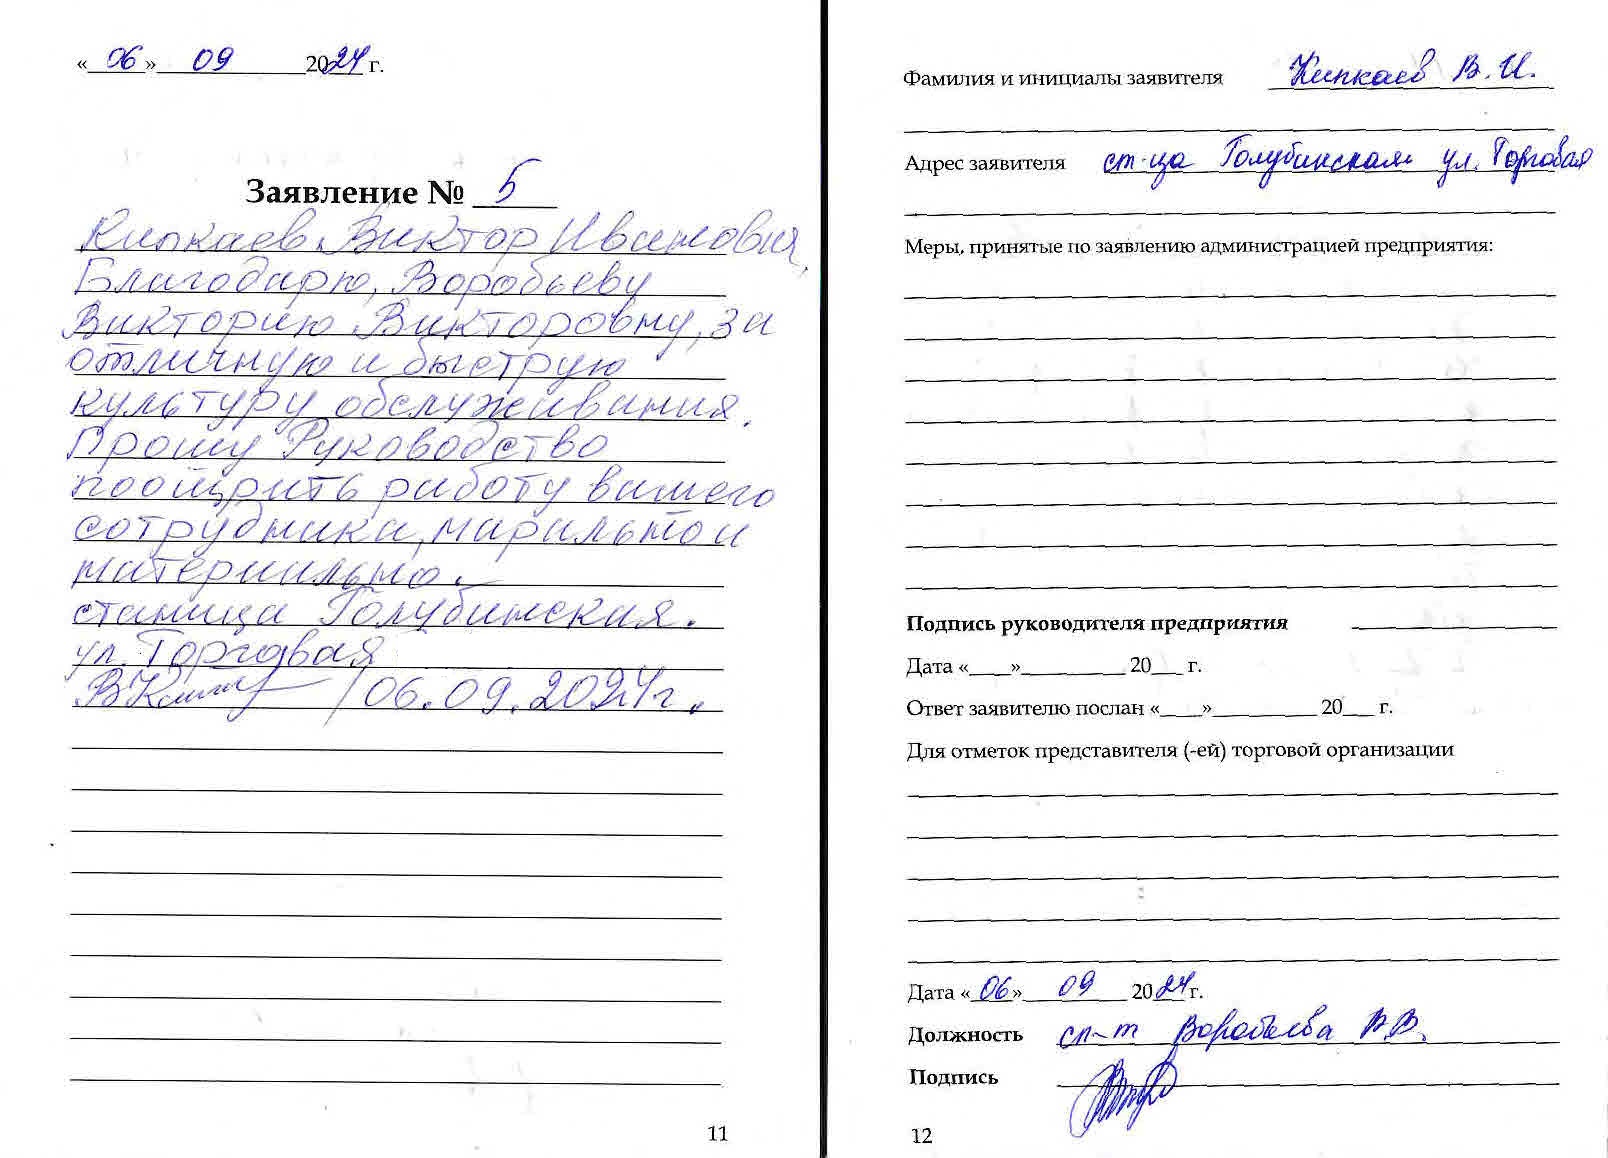 «06» 09 2024 г.
Заявление № 5
Кипкаев Виктор Иванович,
Благодарю, Воробьеву
Викторию Викторовну, за
отличную и быструю
культуру обслуживания.
Прошу Руководство
поощрить работу вашего
сотрудника, марильно и
материально.
станица Голубинская.
ул. Торговая
06.09.2024г.
11
Фамилия и инициалы заявителя Кипкаев В.И.
Адрес заявителя ст-ца Голубинская ул. Торговая
Меры, принятые по заявлению администрацией предприятия:
Подпись руководителя предприятия
Дата «____»__________ 20___ г.
Ответ заявителю послан «____»__________ 20___ г.
Для отметок представителя (-ей) торговой организации
Дата «06» 09 2024 г.
Должность сп-т Воробьева В.В.
Подпись
12